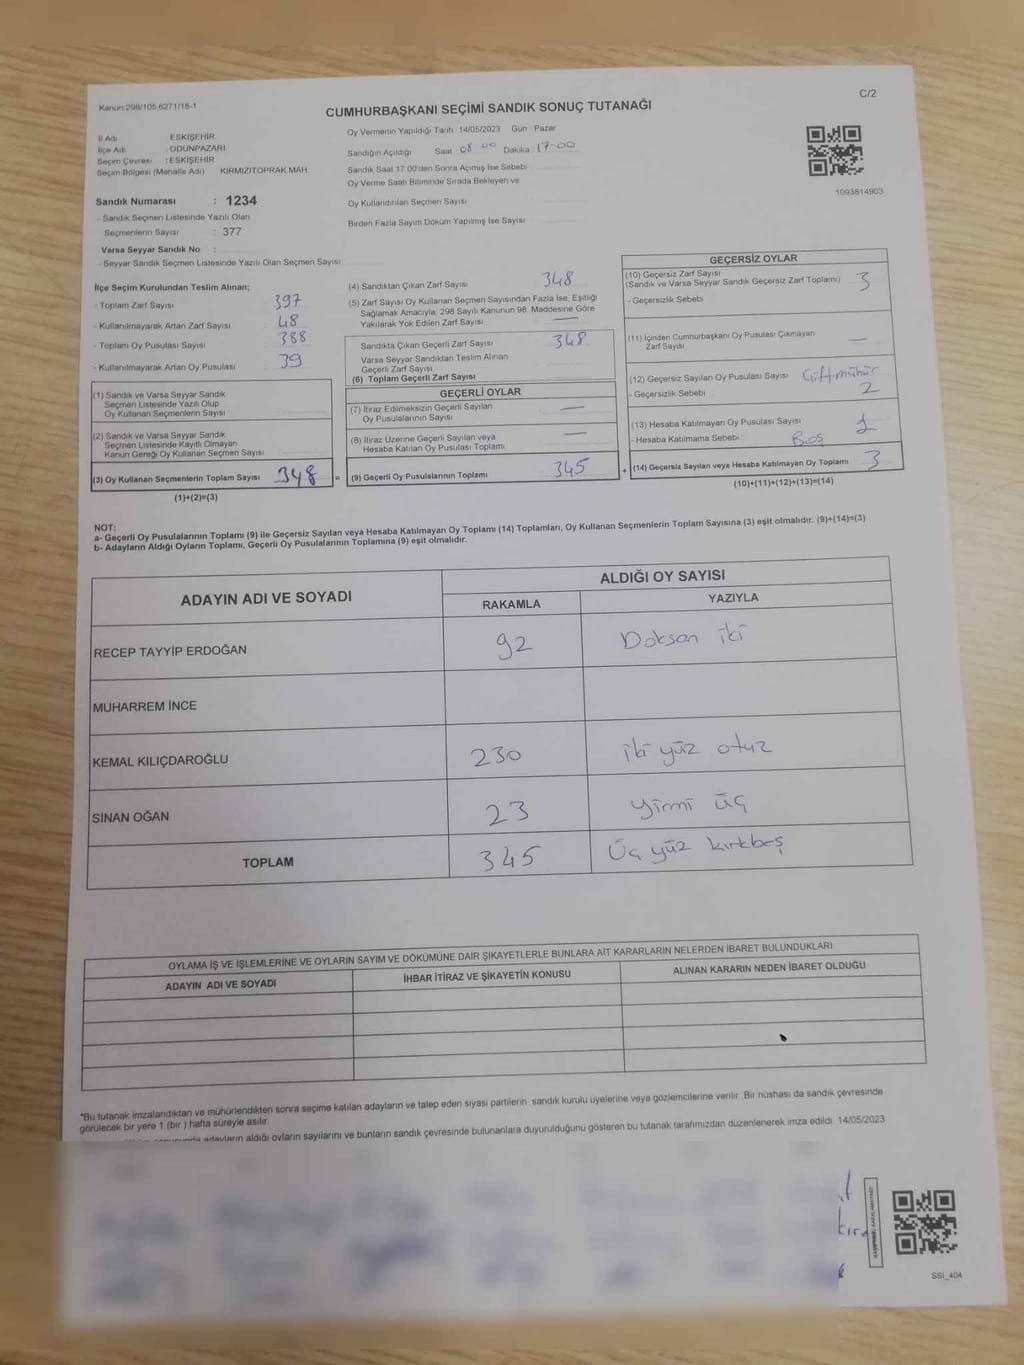 Kanun 298/105 6271/18-1
C/2
CUMHURBAŞKANI SEÇİMİ SANDIK SONUÇ TUTANAĞI
İl Adı ESKİŞEHİR
İlçe Adı ODUNPAZARI
Seçim Çevresi : ESKİŞEHİR
Seçim Bölgesi (Mahalle Adı) KIRMIZITOPRAK MAH.
Oy Vermenin Yapıldığı Tarih 14/05/2023 Gün Pazar
Sandığın Açıldığı Saat 08 00 Dakika 17-00
Sandık Saat 17.00'den Sonra Açımış İse Sebebi
Oy Verme Saati Bitiminde Sırada Bekleyen ve
Oy Kullandırılan Seçmen Sayısı
Birden Fazla Sayım Döküm Yapılmış İse Sayısı
1093814903
Sandık Numarası : 1234
- Sandık Seçmen Listesinde Yazılı Olan
Seçmenlerin Sayısı : 377
Varsa Seyyar Sandık No :
- Seyyar Sandık Seçmen Listesinde Yazılı Olan Seçmen Sayısı
İlçe Seçim Kurulundan Teslim Alınan;
- Toplam Zarf Sayısı 397
- Kullanılmayarak Artan Zarf Sayısı 48
- Toplam Oy Pusulası Sayısı 388
- Kullanılmayarak Artan Oy Pusulası 39
(1) Sandık ve Varsa Seyyar Sandık
Seçmen Listesinde Yazılı Olup
Oy Kullanan Seçmenlerin Sayısı
(2) Sandık ve Varsa Seyyar Sandık
Seçmen Listesinde Kayıtlı Olmayan
Kanun Gereği Oy Kullanan Seçmen Sayısı
(3) Oy Kullanan Seçmenlerin Toplam Sayısı 348 =
(1)+(2)=(3)
(4) Sandıktan Çıkan Zarf Sayısı 348
(5) Zarf Sayısı Oy Kullanan Seçmen Sayısından Fazla İse, Eşitliği
Sağlamak Amacıyla; 298 Sayılı Kanunun 98. Maddesine Göre
Yakılarak Yok Edilen Zarf Sayısı —
Sandıkta Çıkan Geçerli Zarf Sayısı 348
Varsa Seyyar Sandıktan Teslim Alınan
Geçerli Zarf Sayısı
(6) Toplam Geçerli Zarf Sayısı
GEÇERLİ OYLAR
(7) İtiraz Edilmeksizin Geçerli Sayılan
Oy Pusulalarının Sayısı —
(8) İtiraz Üzerine Geçerli Sayılan veya
Hesaba Katılan Oy Pusulaları Toplamı —
(9) Geçerli Oy Pusulalarının Toplamı 345 +
GEÇERSİZ OYLAR
(10) Geçersiz Zarf Sayısı
(Sandık ve Varsa Seyyar Sandık Geçersiz Zarf Toplamı) 3
- Geçersizlik Sebebi
(11) İçinden Cumhurbaşkanı Oy Pusulası Çıkmayan
Zarf Sayısı —
(12) Geçersiz Sayılan Oy Pusulası Sayısı Çift mühür
- Geçersizlik Sebebi 2
(13) Hesaba Katılmayan Oy Pusulası Sayısı 1
- Hesaba Katılmama Sebebi Boş
(14) Geçersiz Sayılan veya Hesaba Katılmayan Oy Toplamı 3
(10)+(11)+(12)+(13)=(14)
NOT:
a- Geçerli Oy Pusulalarının Toplamı (9) ile Geçersiz Sayılan veya Hesaba Katılmayan Oy Toplamı (14) Toplamları, Oy Kullanan Seçmenlerin Toplam Sayısına (3) eşit olmalıdır. (9)+(14)=(3)
b- Adayların Aldığı Oyların Toplamı, Geçerli Oy Pusulalarının Toplamına (9) eşit olmalıdır.
ADAYIN ADI VE SOYADI
ALDIĞI OY SAYISI
RAKAMLA YAZIYLA
RECEP TAYYİP ERDOĞAN 92 Doksan iki
MUHARREM İNCE
KEMAL KILIÇDAROĞLU 230 iki yüz otuz
SİNAN OĞAN 23 yirmi üç
TOPLAM 345 Üç yüz kırkbeş
OYLAMA İŞ VE İŞLEMLERİNE VE OYLARIN SAYIM VE DÖKÜMÜNE DAİR ŞİKAYETLERLE BUNLARA AİT KARARLARIN NELERDEN İBARET BULUNDUKLARI
ADAYIN ADI VE SOYADI İHBAR İTİRAZ VE ŞİKAYETİN KONUSU ALINAN KARARIN NEDEN İBARET OLDUĞU
*Bu tutanak imzalandıktan ve mühürlendikten sonra seçime katılan adayların ve talep eden siyasi partilerin sandık kurulu üyelerine veya gözlemcilerine verilir. Bir nüshası da sandık çevresinde
görülecek bir yere 1 (bir ) hafta süreyle asılır.
adayların aldığı oyların sayılarını ve bunların sandık çevresinde bulunanlara duyurulduğunu gösteren bu tutanak tarafımızdan düzenlenerek imza edildi. 14/05/2023
SSİ_404